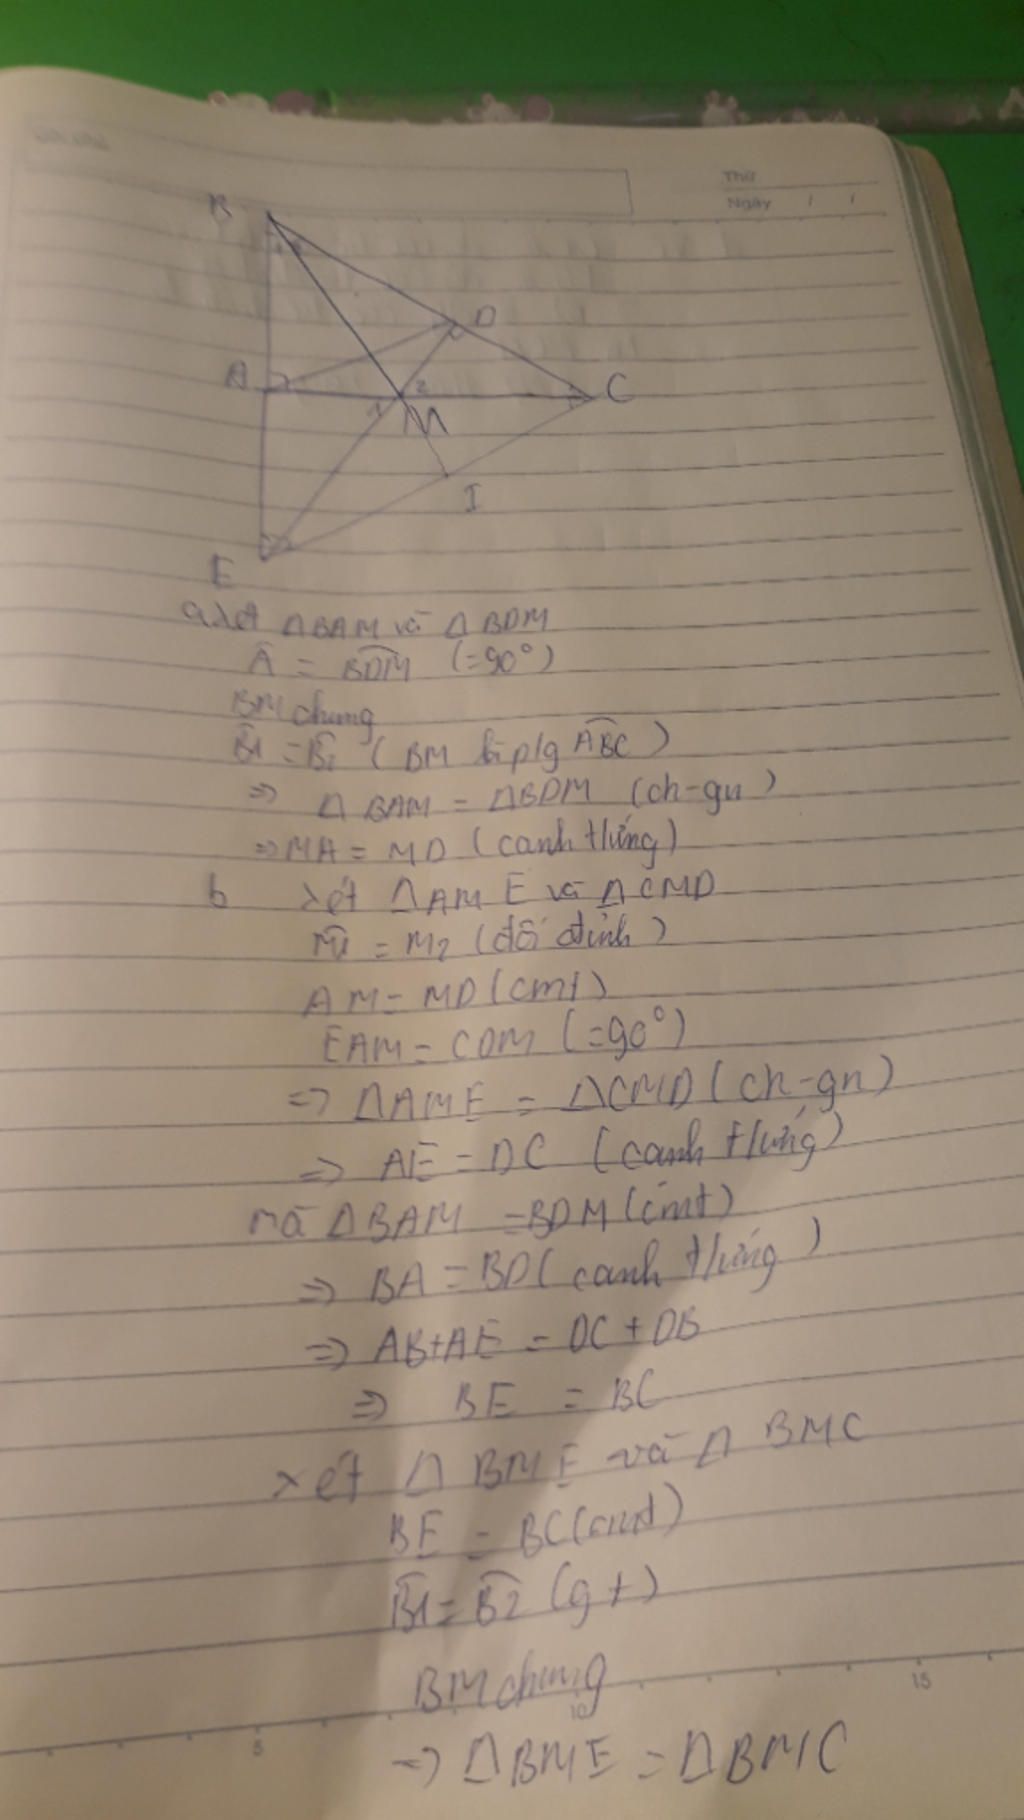 Thứ
Ngày / /
B
D
A
2
C
1
M
I
E
a, xét ΔBAM và ΔBDM
Â = BDM (=90°)
BM chung
B1 = B2 (BM là p/g ABC)
=> ΔBAM = ΔBDM (ch-gn)
=> MA = MD (cạnh t/ứng)
b xét ΔAME và ΔCMD
M1 = M2 (đối đỉnh)
AM = MD (cmt)
EAM = CDM (=90°)
=> ΔAME = ΔCMD (ch-gn)
=> AE = DC (canh t/ứng)
mà ΔBAM = BDM (cmt)
=> BA = BD (canh t/ứng)
=> AB+AE = DC + DB
=> BE = BC
xét Δ BME và Δ BMC
BE = BC (cmt)
B1 = B2 (gt)
BM chung
=> ΔBME = ΔBMC
5 10 15